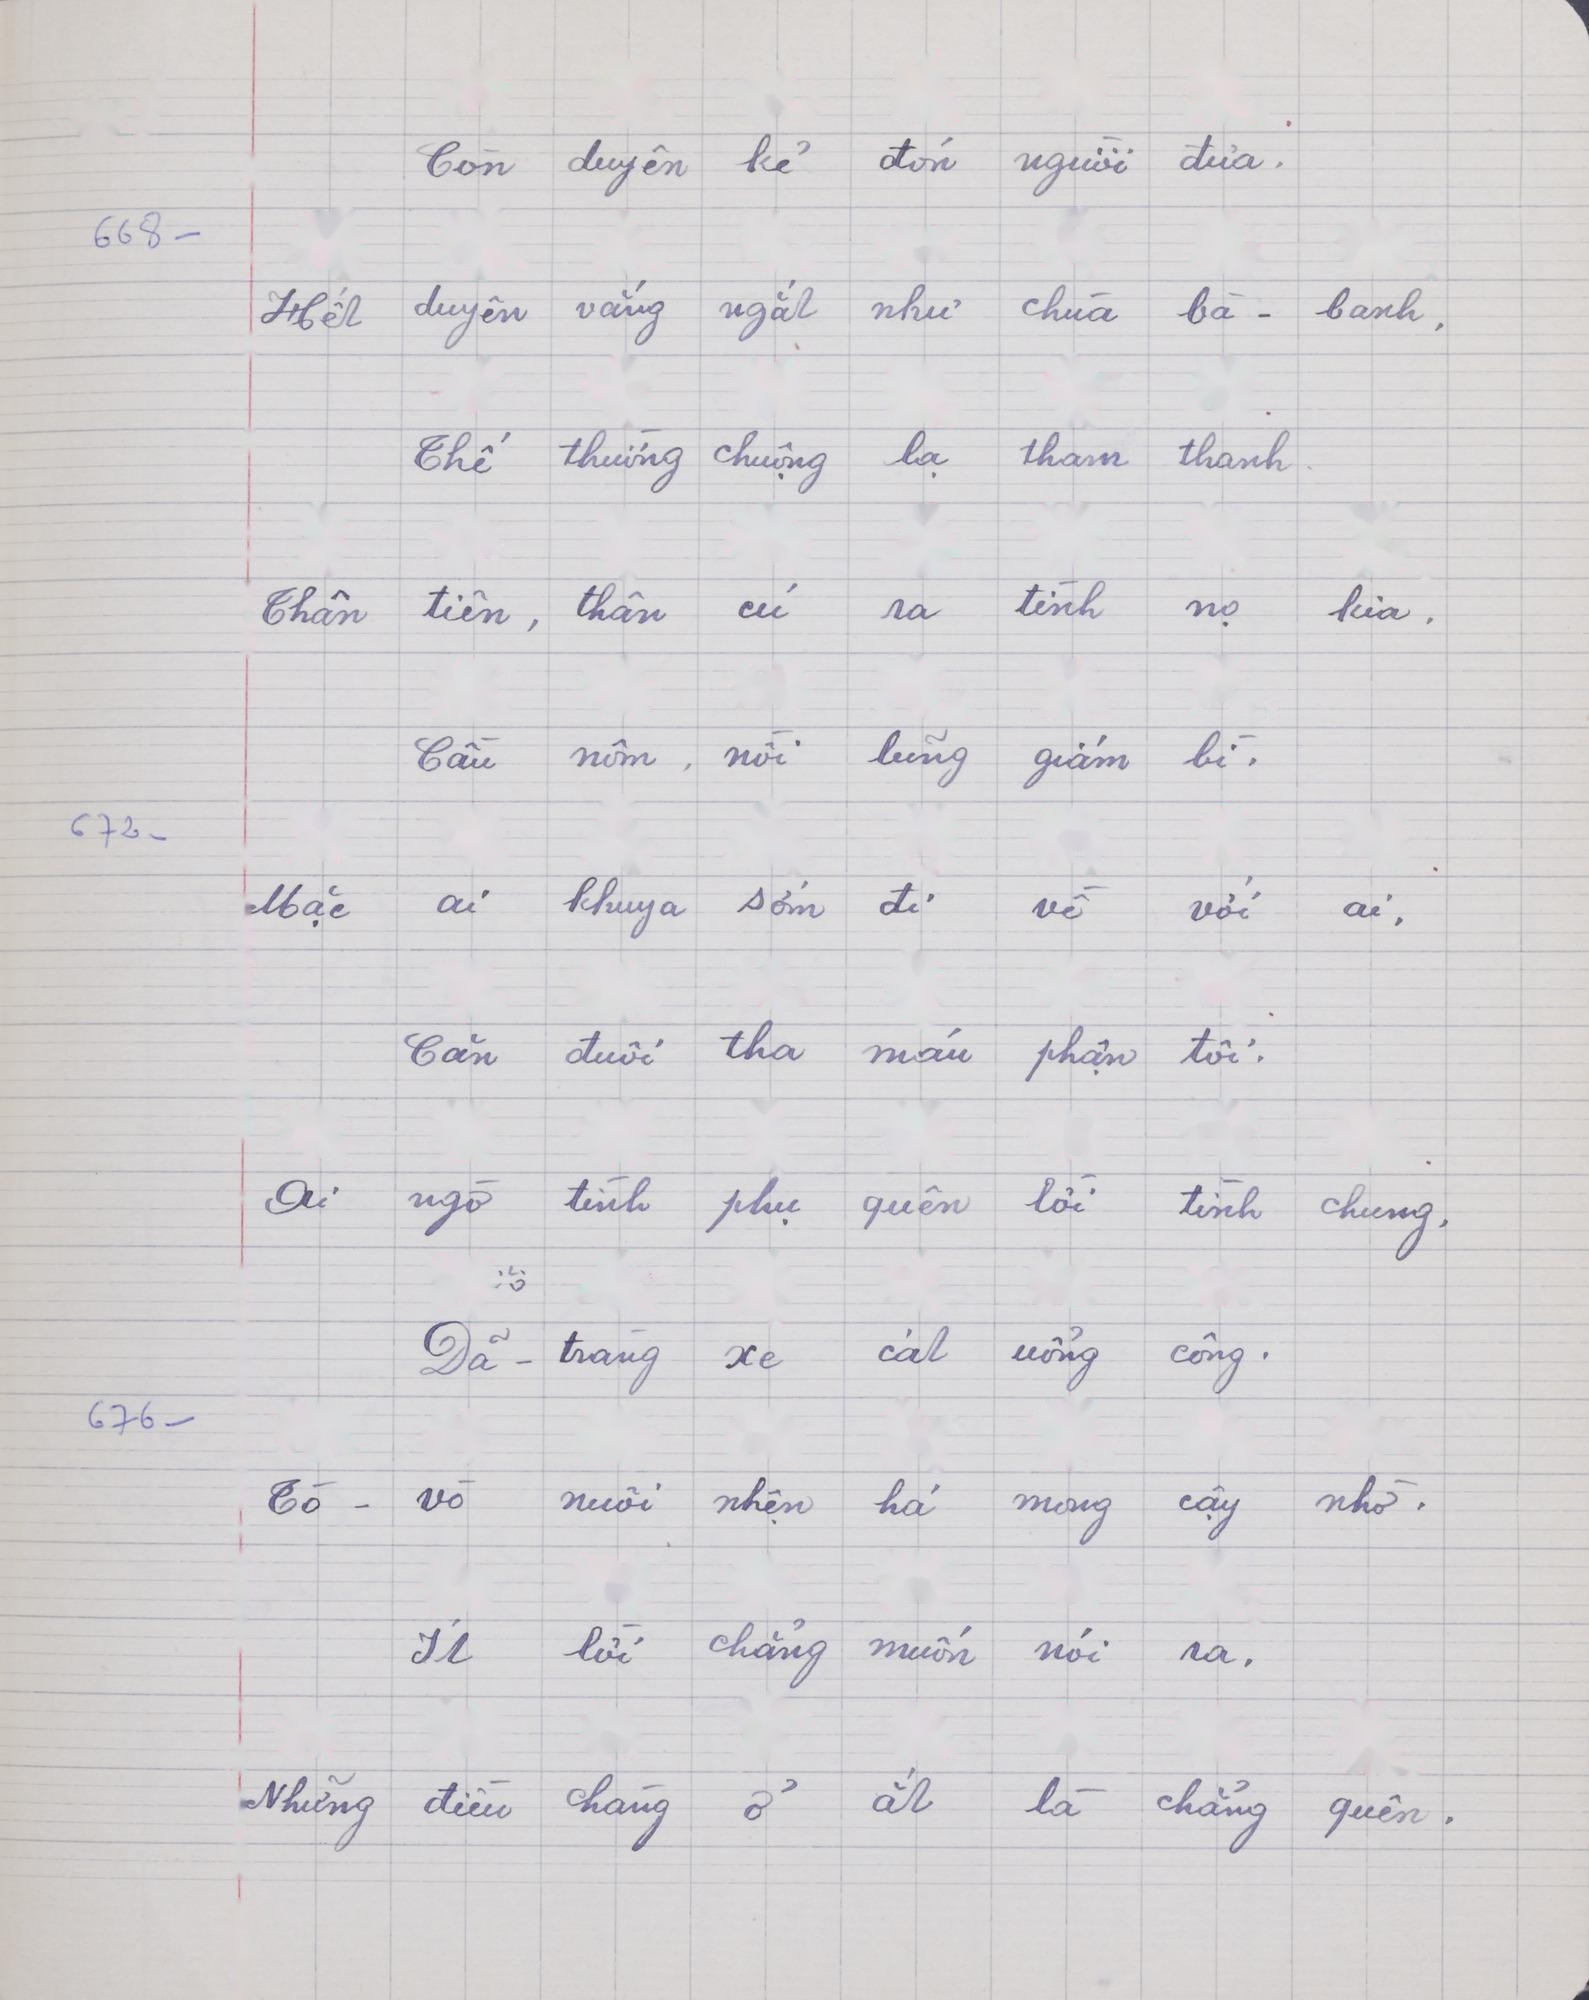 Còn duyên kẻ đón người đưa.
668-
Hết duyên vắng ngắt như chùa bà - banh,
Thế thường chuộng lạ tham thanh.
Thân tiên, thân cú ra tình nọ kia.
Cầu nôm, nồi lũng giám bì.
672-
Mặc ai khuya sớm đi về với ai,
Cắn đuôi tha máu phận tôi.
Ai ngờ tình phụ quên lời tình chung,
Dã - tràng xe cát uổng công.
676-
Tò - vò nuôi nhện há mong cậy nhờ.
Ít lời chẳng muốn nói ra,
Những điều chàng ở ắt là chẳng quên.